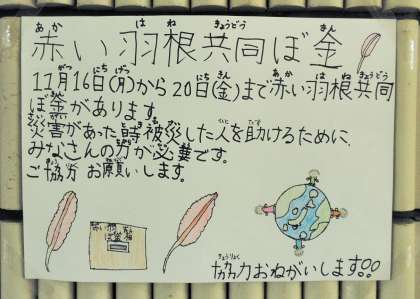 赤い羽根共同ぼ金
11月16日(月)から20日(金)まで赤い羽根共同
ぼ金があります。
災害があった時被災した人を助けるために、
みなさんの力が必要です。
ご協力お願いします。
赤い羽根
ぼ金箱
協力おねがいします!!